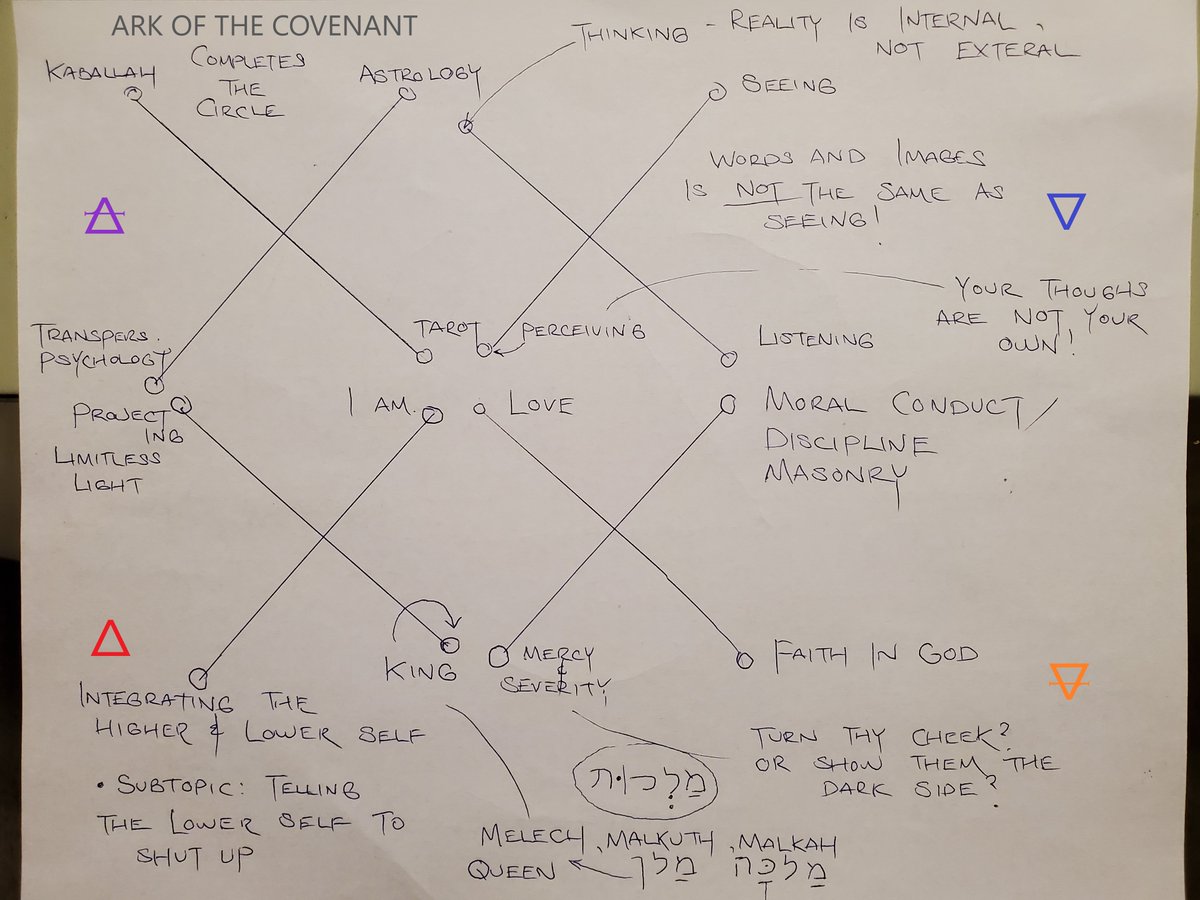 ARK OF THE COVENANT
THINKING - REALITY IS INTERNAL,
NOT EXTERAL
KABALLAH
COMPLETES
THE
CIRCLE
ASTROLOGY
SEEING
WORDS AND IMAGES
IS NOT THE SAME AS
SEEING!
YOUR THOUGHS
ARE NOT YOUR
OWN!
TRANSPERS.
PSYCHOLOGY
TAROT
PERCEIVING
LISTENING
PROJECT
ING
LIMITLESS
LIGHT
I AM.
LOVE
MORAL CONDUCT/
DISCIPLINE
MASONRY
KING
MERCY
&
SEVERITY
FAITH IN GOD
INTEGRATING THE
HIGHER & LOWER SELF
• SUBTOPIC: TELLING
THE LOWER SELF TO
SHUT UP
TURN THY CHEEK?
OR SHOW THEM THE
DARK SIDE?
מַלְכוּת
MELECH, MALKUTH, MALKAH
QUEEN מַלך מַלכָּה